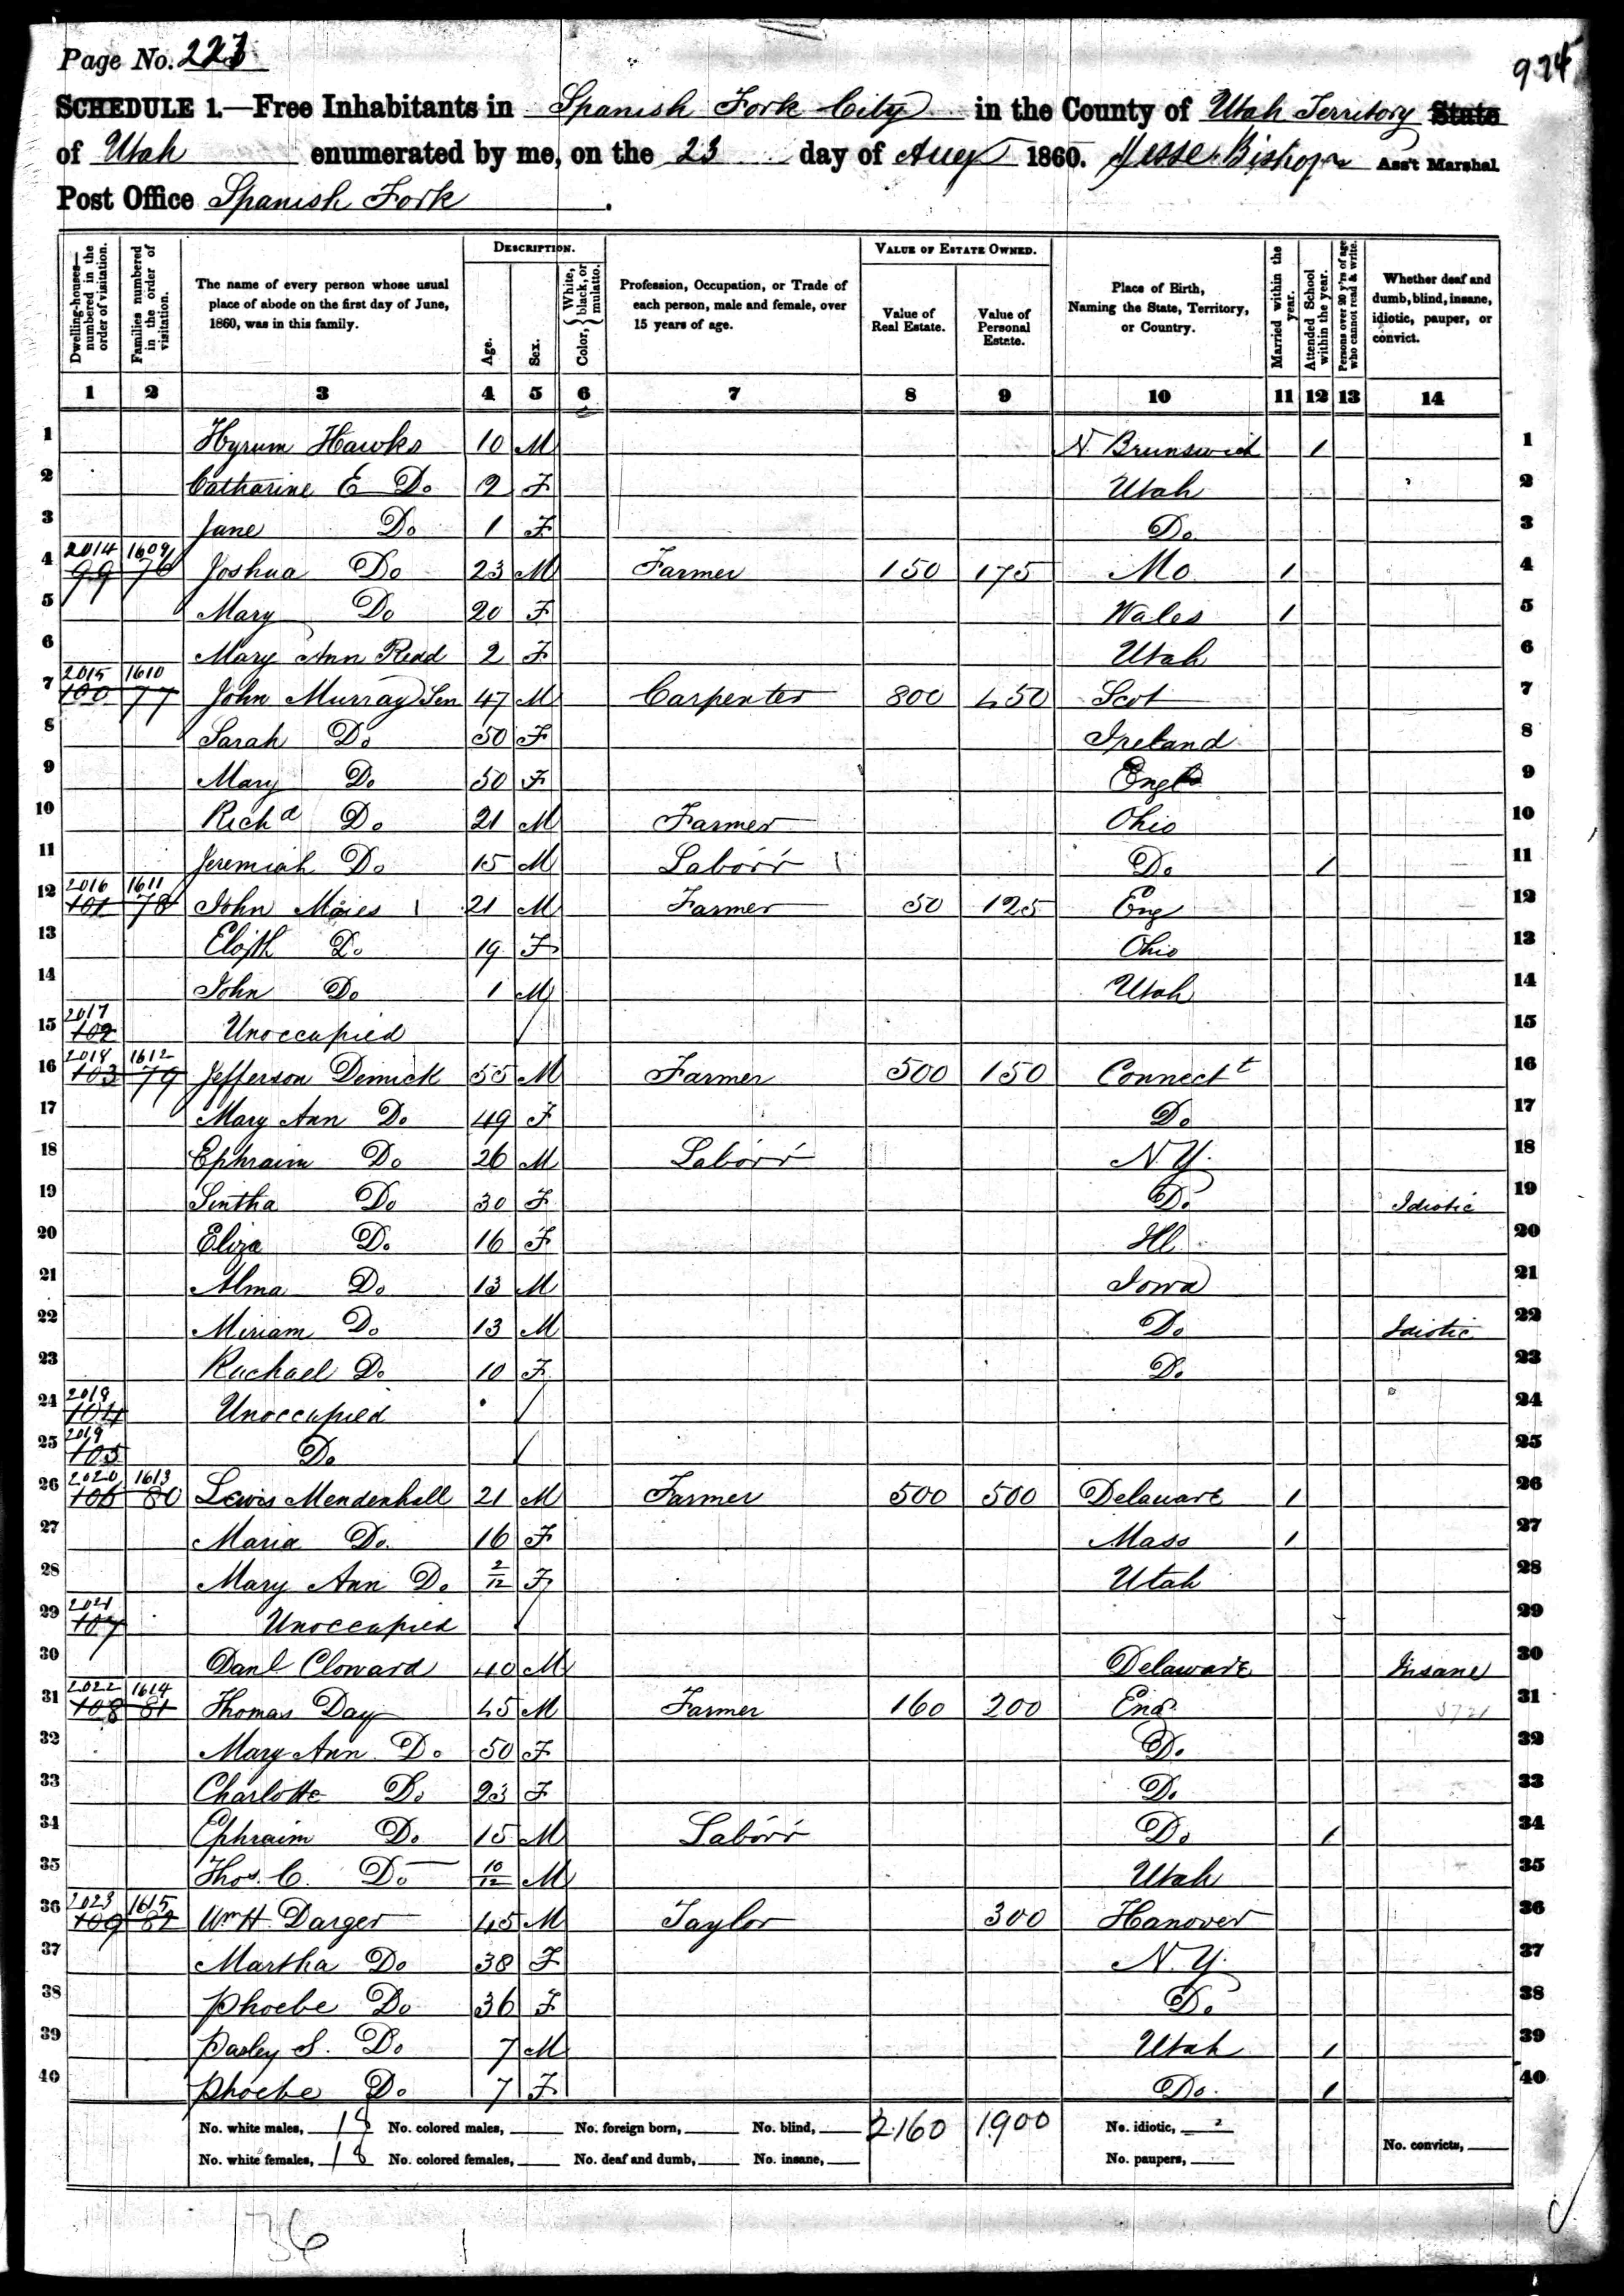 Page No. 223
974
SCHEDULE 1.—Free Inhabitants in Spanish Fork City in the County of Utah Territory State
of Utah enumerated by me, on the 23 day of Aug 1860. Jesse Bishop Ass't Marshal
Post Office Spanish Fork.
Dwelling-houses—numbered in the order of visitation.
Families numbered in the order of visitation.
The name of every person whose usual place of abode on the first day of June, 1860, was in this family.
DESCRIPTION.
Age.
Sex.
Color, { White, black, or mulatto.
Profession, Occupation, or Trade of each person, male and female, over 15 years of age.
VALUE OF ESTATE OWNED.
Value of Real Estate.
Value of Personal Estate.
Place of Birth, Naming the State, Territory, or Country.
Married within the year.
Attended School within the year.
Persons over 20 y'rs of age who cannot read & write.
Whether deaf and dumb, blind, insane, idiotic, pauper, or convict.
1 2 3 4 5 6 7 8 9 10 11 12 13 14
1 Hyrum Hawks 10 M N. Brunswick 1 1
2 Catharine E Do 2 F Utah 2
3 Jane Do 1 F Do 3
4 2014 99 1609 76 Joshua Do 23 M Farmer 150 175 Mo 1 4
5 Mary Do 20 F Wales 1 5
6 Mary Ann Redd 2 F Utah 6
7 2015 100 1610 77 John Murray Sen 47 M Carpenter 800 450 Scot 7
8 Sarah Do 50 F Ireland 8
9 Mary Do 50 F Engd 9
10 Richd Do 21 M Farmer Ohio 10
11 Jeremiah Do 15 M Laborr Do 1 11
12 2016 101 1611 78 John Moies 21 M Farmer 50 125 Eng 12
13 Elizth Do 19 F Ohio 13
14 John Do 1 M Utah 14
15 2017 102 Unoccupied 15
16 2018 103 1612 79 Jefferson Demick 55 M Farmer 500 150 Connect t 16
17 Mary Ann Do 49 F Do 17
18 Ephraim Do 26 M Laborr N.Y. 18
19 Sintha Do 30 F Do Idiotic 19
20 Eliza Do 16 F Ill 20
21 Alma Do 13 M Iowa 21
22 Miriam Do 13 M Do Idiotic 22
23 Rachael Do 10 F Do 23
24 2018 104 Unoccupied 24
25 2019 105 Do 25
26 2020 106 1613 80 Lewis Mendenhall 21 M Farmer 500 500 Delaware 1 26
27 Maria Do 16 F Mass 1 27
28 Mary Ann Do 2/12 F Utah 28
29 2021 107 Unoccupied 29
30 Danl Cloward 40 M Delaware Insane 30
31 2022 108 1614 81 Thomas Day 45 M Farmer 160 200 Eng 31
32 Mary Ann Do 50 F Do 32
33 Charlotte Do 23 F Do 33
34 Ephraim Do 15 M Laborr Do 1 34
35 Thos. C. Do 10/12 M Utah 35
36 2023 109 1615 82 Wm H. Darger 45 M Taylor 300 Hanover 36
37 Martha Do 38 F N.Y. 37
38 Phoebe Do 36 F Do 38
39 Parley S. Do 7 M Utah 1 39
40 Phoebe Do 7 F Do 1 40
No. white males, 18 No. colored males, No. foreign born, No. blind, 2.160 1900 No. idiotic, 2
No. white females, 18 No. colored females, No. deaf and dumb, No. insane, No. paupers, No. convicts,
36